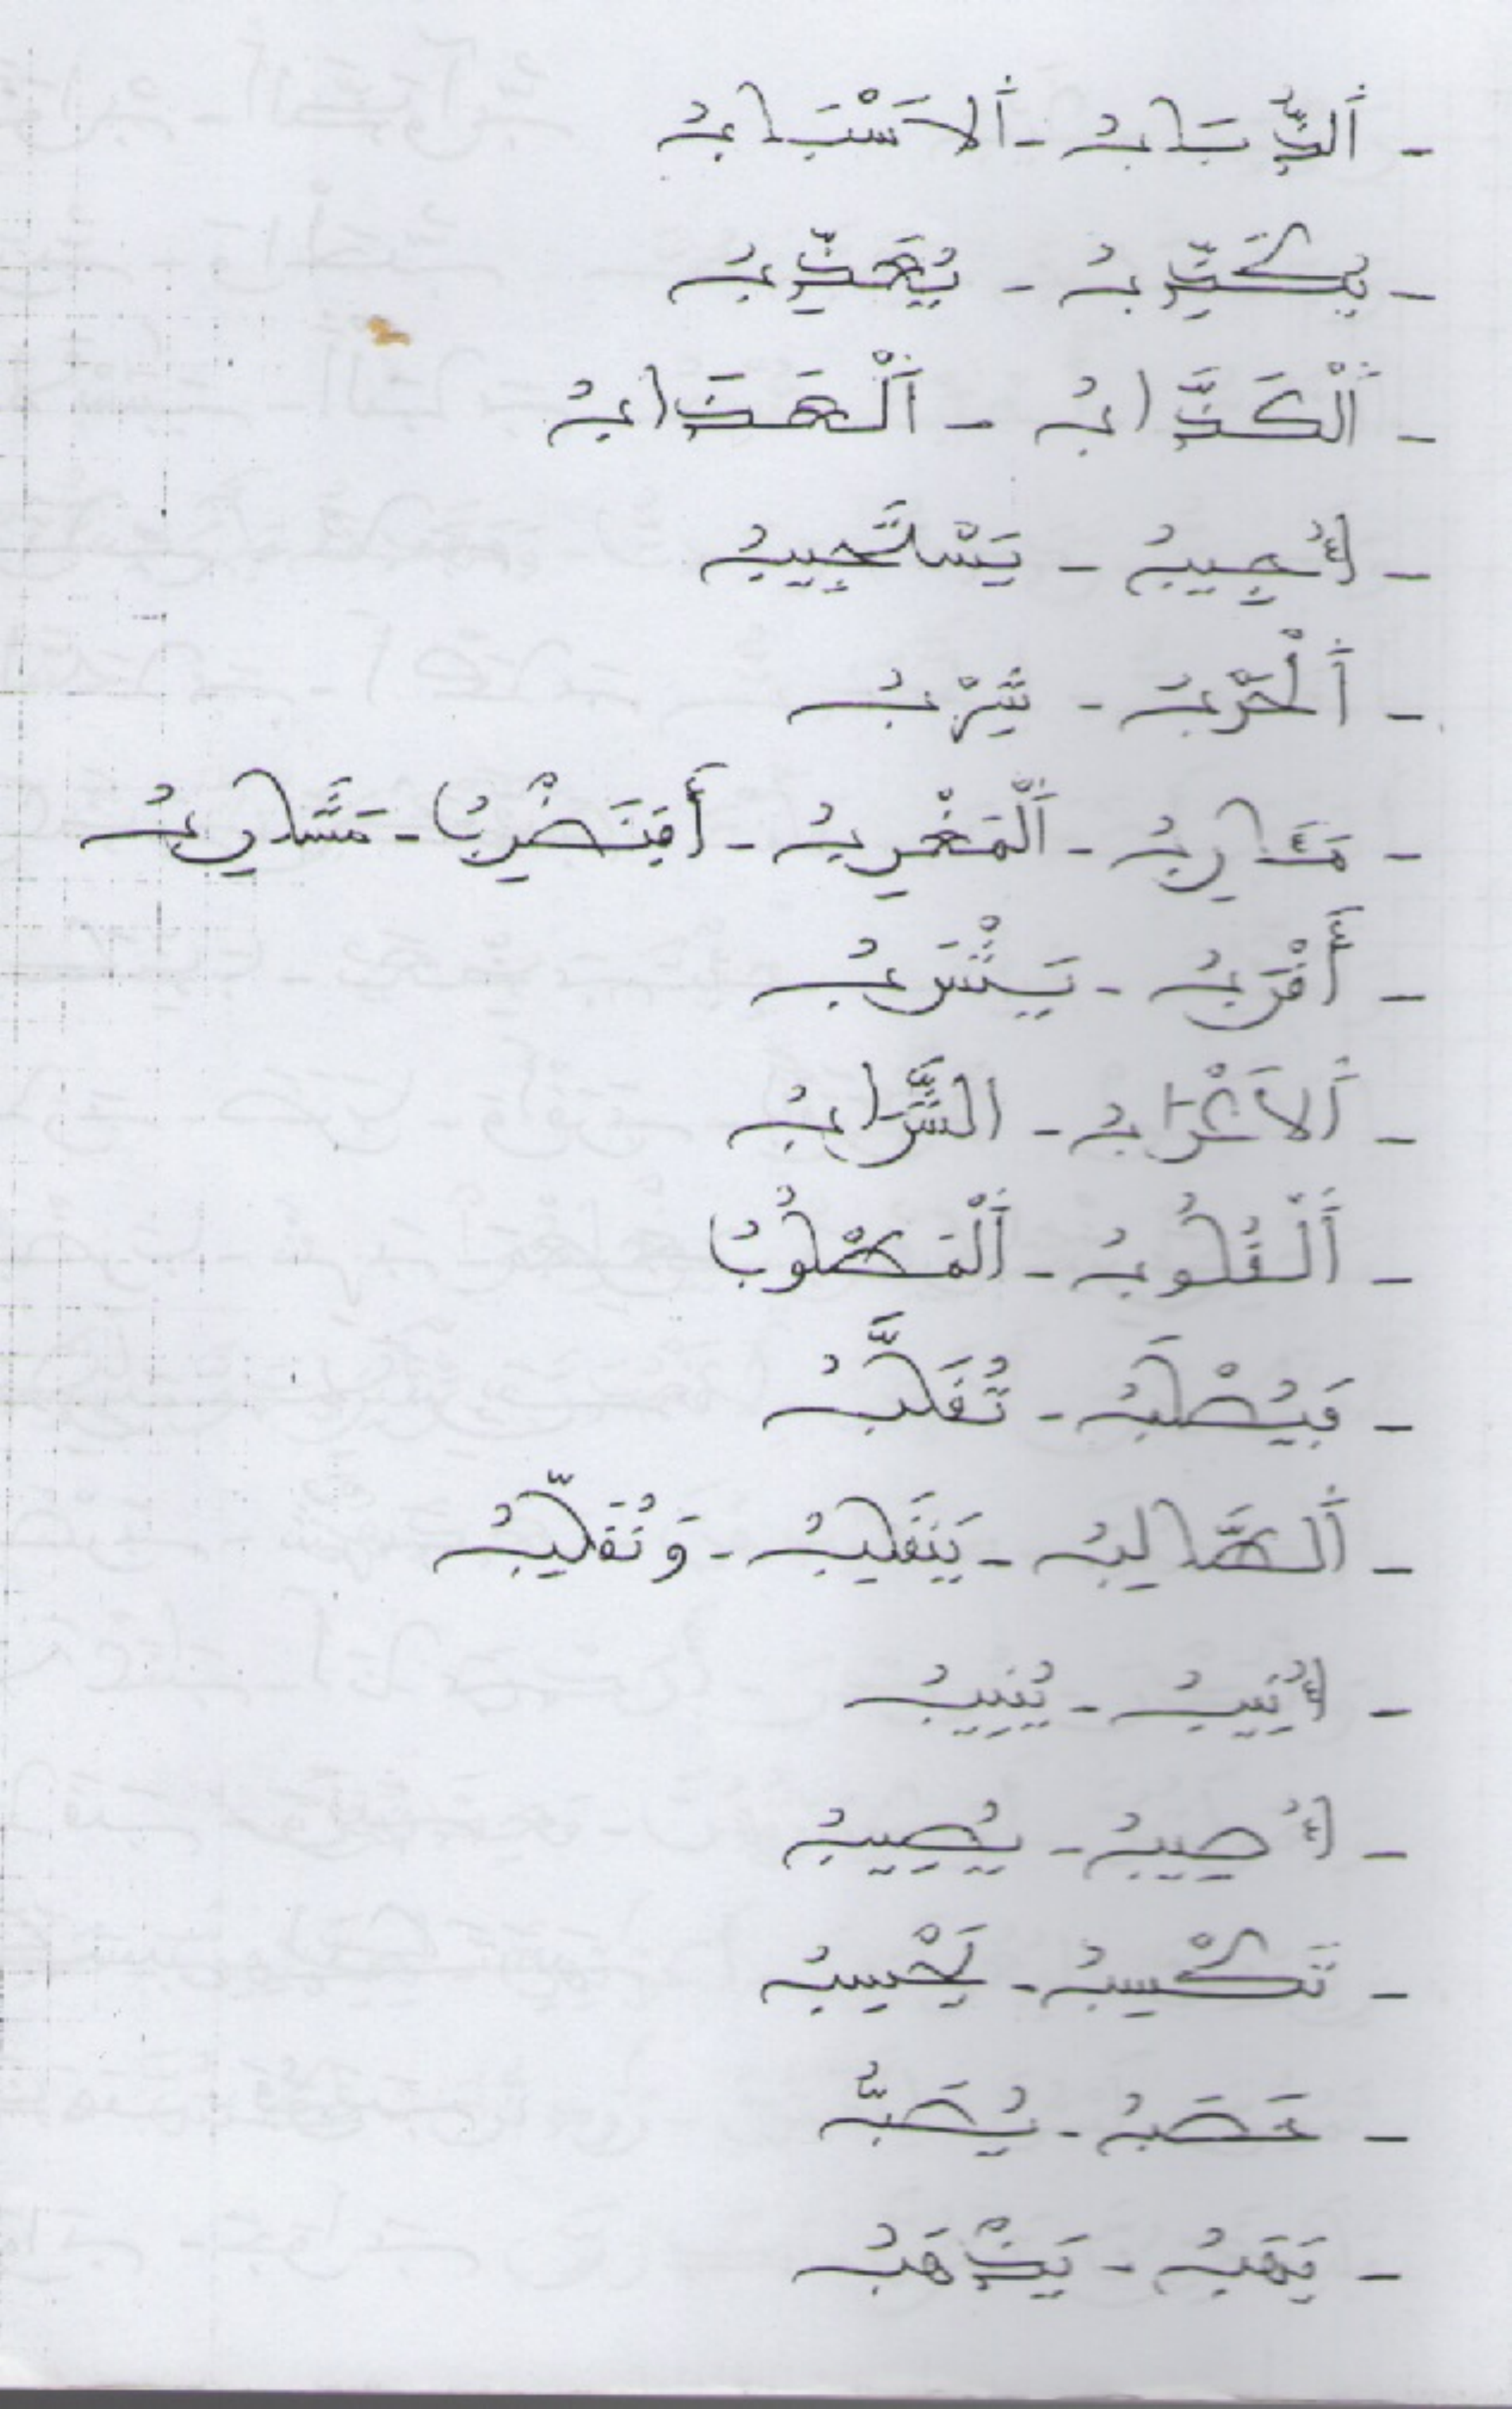 - أَلذُّبَابُ - أَلَاسْبَابُ
- يُكَذِّبُ - يُعَذِّبُ
- أَلْكَذَّابُ - أَلْعَذَابُ
- أُجِيبُ - يَسْتَجِيبُ
- أَلْحَرْبُ - يَثْرِبُ
- مَـَٔارِبُ - أَلْمَغْرِبُ - أَفَنَضْرِبُ - مَشَارِبُ
- أَقْرَبُ - يَشْرَبُ
- أَلَاعْرَابُ - الشَّرَابُ
- أَلْقُلُوبُ - أَلْمَطْلُوبُ
- فَيُصْلَبُ - تُقَلَّبُ
- أَلطَّالِبُ - يَنقَلِبُ - وَنُقَلِّبُ
- أُنِيبُ - يُنِيبُ
- أُصِيبُ - يُصِيبُ
- تَكْسِبُ - يَحْسِبُ
- حَصَبُ - يُصَبُّ
- يَهَبُ - يَذْهَبُ